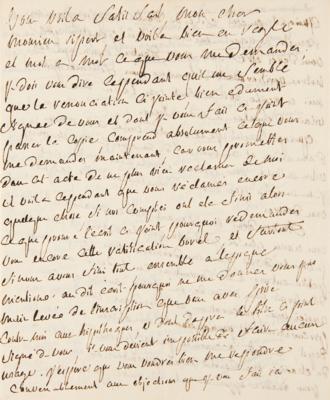 Vous voila satisfait mon cher
monsieur et voila bien en regle
et mot a mot ce que vous me demandez
je dois vous dire cependant quil me semble
que la renonciation ci jointe bien
signée de vous et dont je vous fait ci joint
passer la copie comprend absolument ce que vous
me demandez maintenant, car vous promettez
dans cet acte de ne plus rien reclamer de moi
et voila cependant que vous reclamez encore
quelque chose si nos comptes ont été finis alors
ce que prouve l'écrit ci joint pourquoi redemander
vous encore cette ratification et surtout
si nous avons fini tout ensemble a l'epoque
mentionée au dit écrit pourquoi ne me donnez vous pas
main levée de l'inscription que vous avez prise
contre moi aux hipoteques et dont
signé de vous il vous devient impossible de faire aucun
usage. j'espere que vous voudrez bien me repondre
convenablement aux objections que je vous fait ici